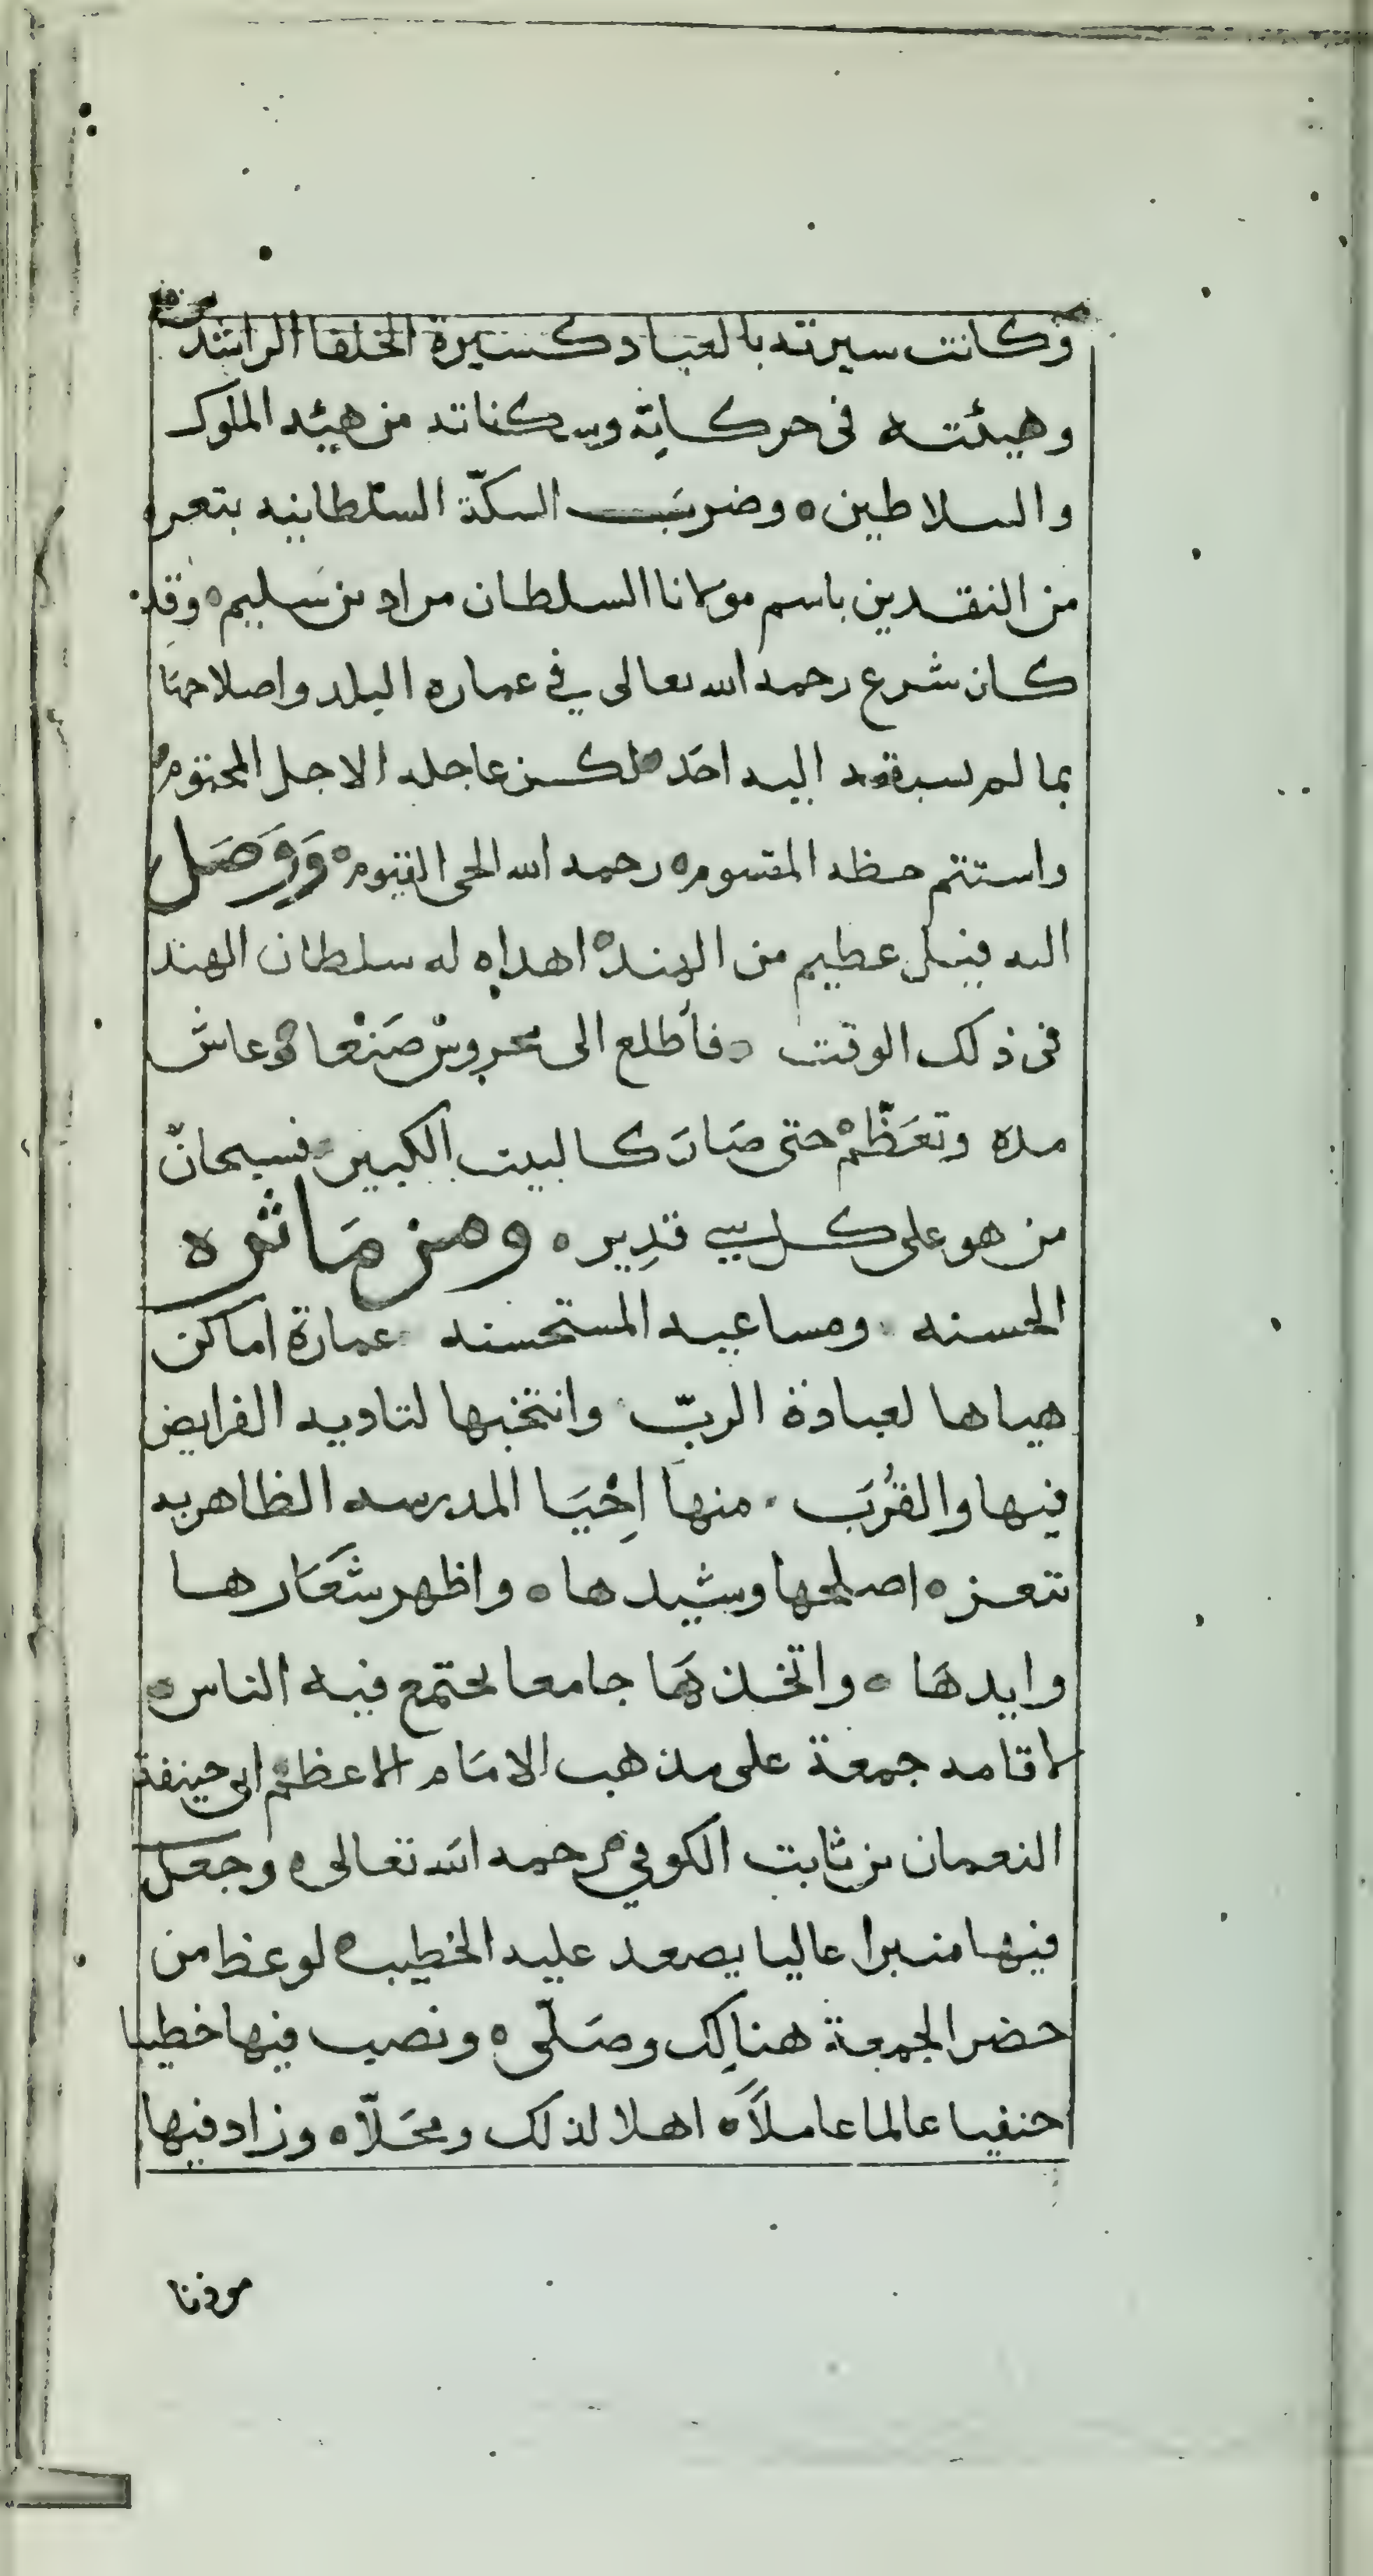 وكانت سيرته بالعباد كسيرة الخلفا الراشد
وهيئته في حركاته وسكناته من هيئه الملوك
والسلاطين ه وضرب السكّة السّلطانيه بتعز
من النقدين باسم مولانا السلطان مراد بن سليم ه وقد
كان شرع رحمه الله تعالى في عماره البلد واصلاحها
بما لم يسبقه اليه احد ه لكن عاجله الاجل المحتوم ه
واستتم حظه المقسوم ه رحمه الله الحي القيوم ه ووصل
اليه فيل عظيم من الهند ه اهداه له سلطان الهند
في ذلك الوقت ه فاطلع الى محروس صنعا ه وعاش
مده وتعظّم ه حتى صار كالبيت الكبير ه فسبحان
من هو على كل شي قدير ه ومن ماثره
الحسنه ومساعيه المستحسنه عمارة اماكن
هياها لعبادة الربّ وانتخبها لتاديه الفرايض
فيها والقُرَب منها اِحْيَا المدرسه الظاهريه
بتعز ه اصلحها وشيدها ه واظهر شعارها
وايدها ه واتخذها جامعا يجتمع فيه الناس ه
لاقامه جمعة على مذهب الامام الاعظم ابي حنيفة
النعمان بن ثابت الكوفي رحمه الله تعالى ه وجعل
فيها منبرا عاليا يصعد عليه الخطيب ه لوعظ من
حضر الجمعة هنالك وصلّى ه ونصب فيها خطيبا
حنفيا عالما عاملاً ه اهلا لذلك ومحلّا ه وزاد فيها
موذنا